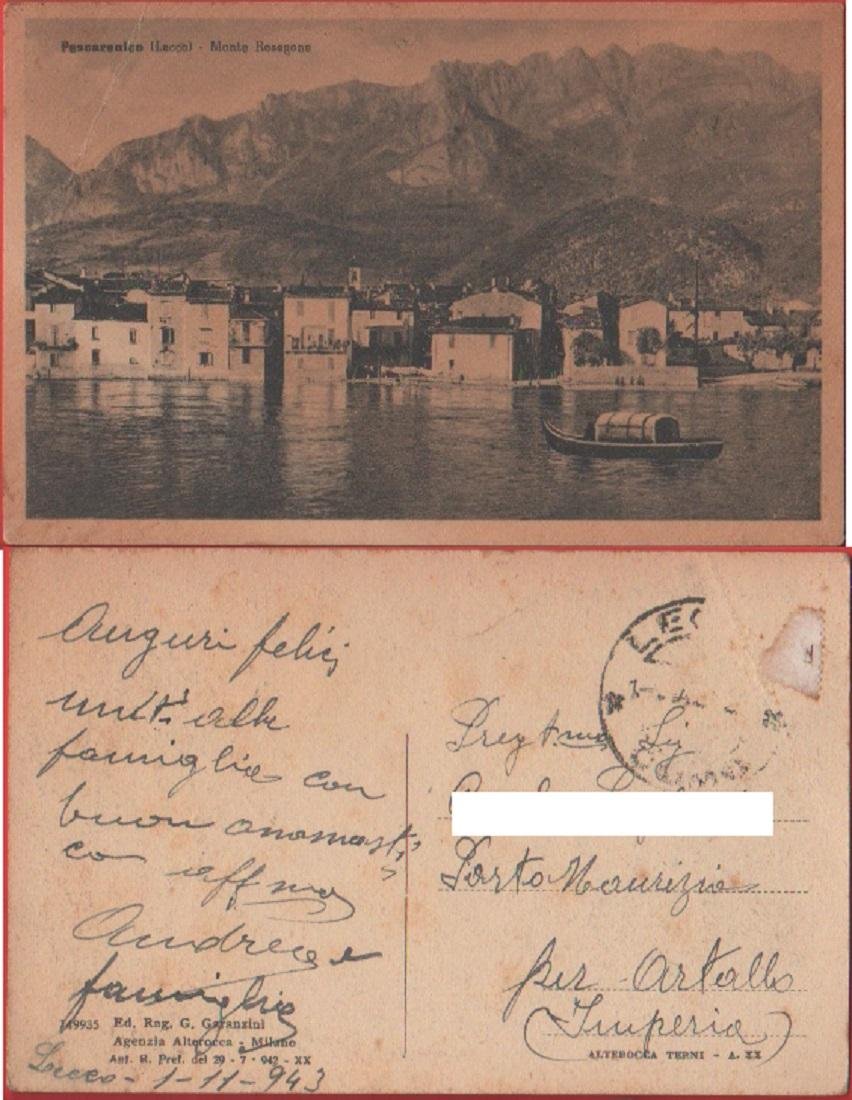 Pescarenico (Lecco) - Monte Resegone
Auguri felici
uniti alla
famiglia con
buon onomasti
co affmo
Andrea e
famiglia
149935 Ed. Rag. G. Garanzini
Agenzia Alterocca - Milano
Aut. R. Pref. del 29 - 7 - 942 - XX
Lecco - 1-11-943
LEC
Sig
Porto Maurizio
per Artallo
(Imperia)
ALTEROCCA TERNI - A. XX